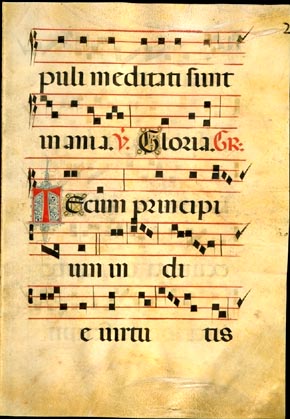 2
puli meditati sunt
inania. V. Gloria. GR:
Tecum principi
um in di
e virtu tis